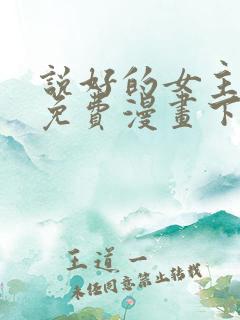 說好的女主
免費漫畫下
王道一
未經同意禁止轉載